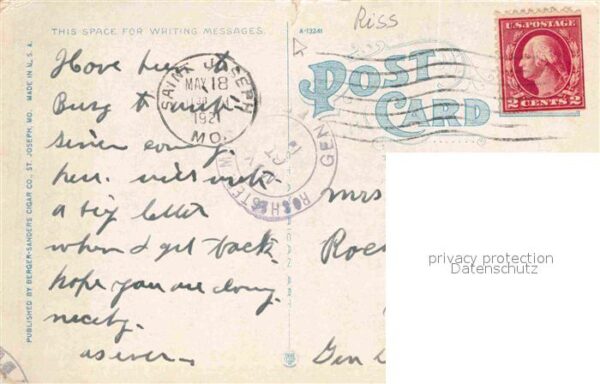 THIS SPACE FOR WRITING MESSAGES.
A-13241
Riss
U.S. POSTAGE
2 CENTS 2
POST
CARD
SAINT JOSEPH
MAY 18
1921
MO.
ROCHESTER
GEN
Have been to
Busy to write
since coming
here. will write
a big letter
when I get back.
hope you are doing
nicely.
as ever
Mrs
Roc
Gen
privacy protection
Datenschutz
PUBLISHED BY BERGER-SANDERS CIGAR CO., ST. JOSEPH, MO. MADE IN U.S.A.